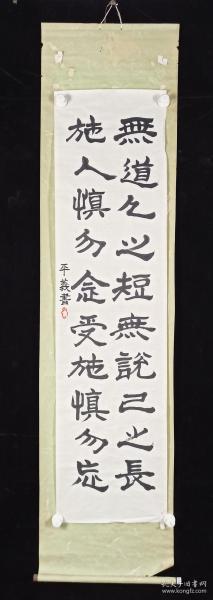 無道人之短無説己之長
施人慎勿念受施慎勿忘
平義書
孔夫子旧书网
kongfz.com